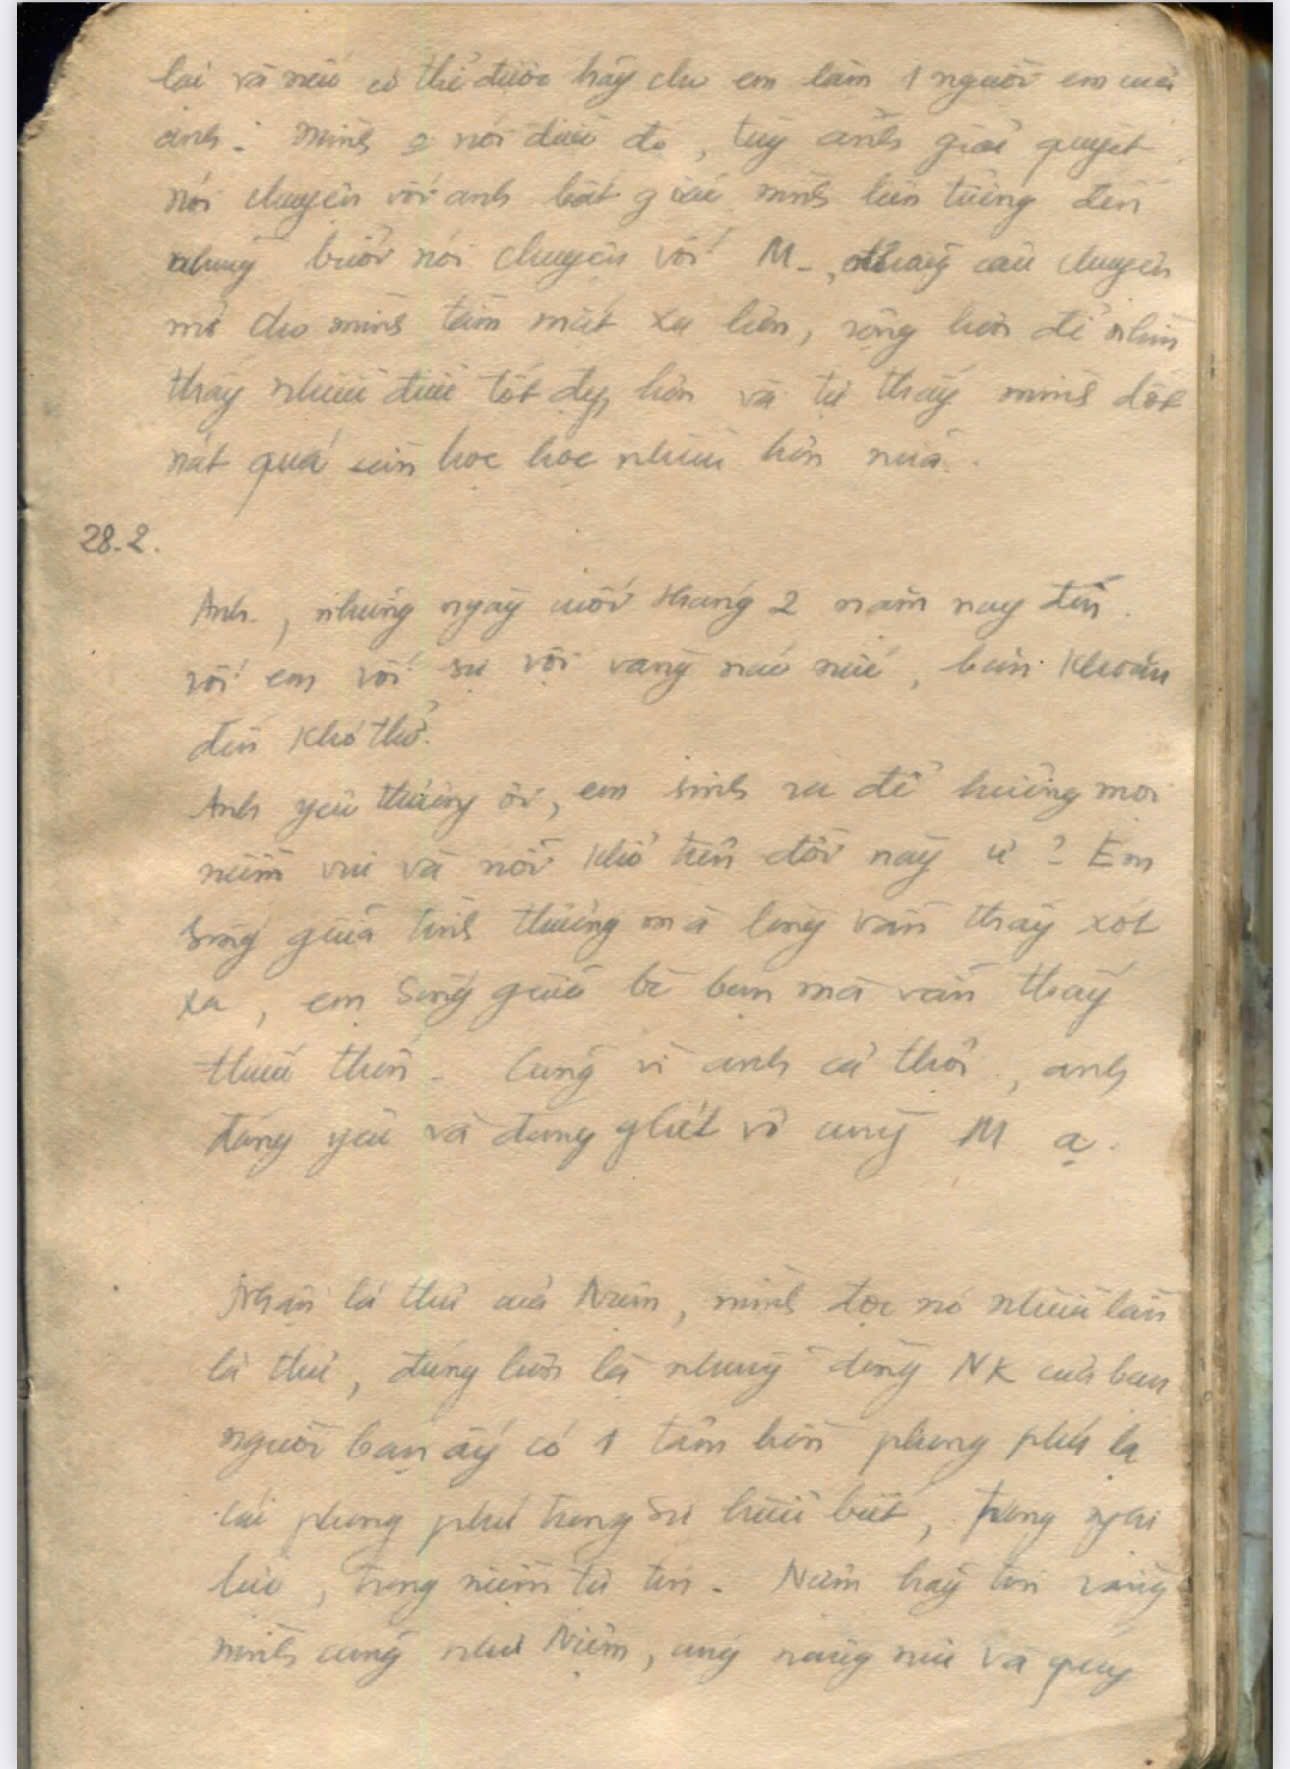 lại và nếu có thể được hãy cho em làm 1 người em của
anh. Mình nói điều đó, tùy anh giải quyết
nói chuyện với anh bất giác mình liên tưởng đến
những buổi nói chuyện với M. câu chuyện
mở cho mình tầm mắt xa hơn, rộng hơn để nhìn
thấy nhiều điều tốt đẹp hơn và tự thấy mình dốt
nát quá cần học học nhiều hơn nữa.
28.2.
Anh, những ngày cuối tháng 2 năm nay đến
với em với sự vội vàng náo nức, băn khoăn
đến khó thở.
Anh yêu thương ơi, em sinh ra để hưởng mọi
niềm vui và nỗi khổ trên đời này ư? Em
sống giữa tình thương mà lòng vẫn thấy xót
xa, em sống giữa bè bạn mà vẫn thấy
thiếu thốn. Cũng vì anh cả thôi, anh
đáng yêu và đáng ghét vô cùng M ạ.
Nhận lá thư của Niệm, mình đọc nó nhiều lần
lá thư, đúng hơn là những dòng NK của bạn
người bạn ấy có 1 tâm hồn phong phú lạ
cái phong phú trong sự hiểu biết, trong nghị
lực, trong niềm tự tin. Niệm hãy tin rằng
mình cũng như Niệm, cũng nâng niu và quý